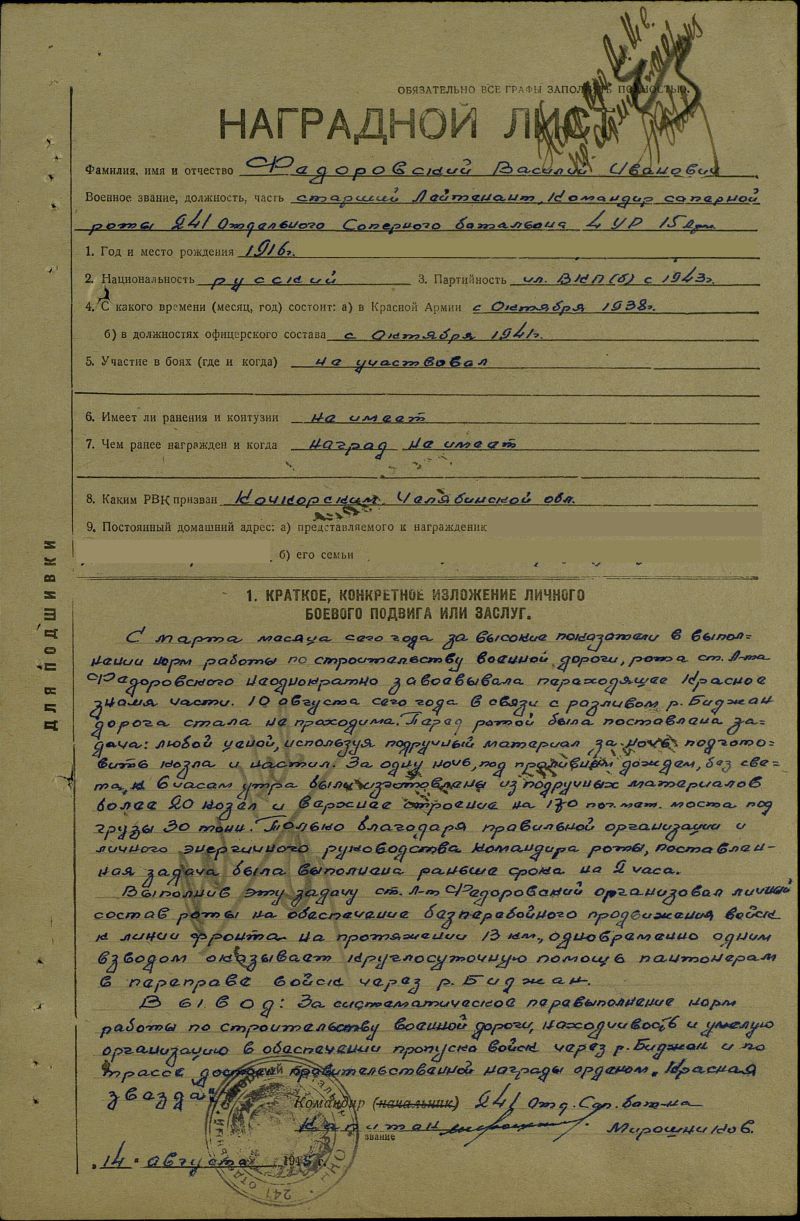 ОБЯЗАТЕЛЬНО ВСЕ ГРАФЫ ЗАПОЛНЯТЬ ПОЛНОСТЬЮ.
НАГРАДНОЙ ЛИСТ
Фамилия, имя и отчество Федоровский Василий Иванович
Военное звание, должность, часть старший Лейтенант, Командир саперной
роты 241 Отдельного Саперного батальона 4 УР 15 Арм.
1. Год и место рождения 1916г.
2. Национальность русский 3. Партийность чл. ВКП(б) с 1943г.
4. С какого времени (месяц, год) состоит: а) в Красной Армии с Октября 1938г.
б) в должностях офицерского состава с Октября 1941г.
5. Участие в боях (где и когда) не участвовал
6. Имеет ли ранения и контузии не имеет
7. Чем ранее награжден и когда наград не имеет
8. Каким РВК призван Кочкорским, Челябинской обл.
9. Постоянный домашний адрес: а) представляемого к награждению
б) его семьи
ДЛЯ ПОДШИВКИ
1. КРАТКОЕ, КОНКРЕТНОЕ ИЗЛОЖЕНИЕ ЛИЧНОГО
БОЕВОГО ПОДВИГА ИЛИ ЗАСЛУГ.
С марта месяца сего года за высокие показатели в выпол-
нении норм работы по строительству военной дороги, рота ст. Л-та
Федоровского неоднократно завоевывала переходящее Красное
знамя части. 10 августа сего года в связи с разливом р. Биджан
дорога стала не проходима. Перед ротой была поставлена за-
дача: любой ценой, используя подручный материал за ночь подгото-
вить козла и настил. За одну ночь, под проливным дождем, без све-
та, к 6 часам утра были изготовлены из подручных материалов
более 20 козел и верхнее строение на 170 пог. мет. моста под
грузы 30 тонн. Только благодаря правильной организации и
личного энергичного руководства командира роты, поставлен-
ная задача была выполнена раньше срока на 2 часа.
Выполнив эту задачу ст. л-т Федоровский организовал личный
состав роты на обеспечение безперебойного продвижения войск
к линии фронта на протяжении 13 км., одновременно одним
взводом оказывает круглосуточную помощь понтонерам
в переправе войск через р. Биджан.
Вывод: За систематическое перевыполнение норм
работы по строительству военной дороги, находчивость и умелую
организацию в обеспечении пропуска войск через р. Биджан и по
трассе достоен правительственной награды орденом „Красная
звезда"
Командир (начальник) 241 Отд. Сап. бат-на
Капитан Мирошников.
звание
„14" августа 1945 г.